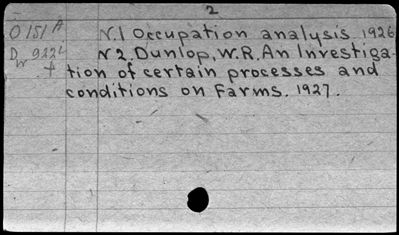 2
O 151 A N.1 Occupation analysis. 1926
D 922L N 2. Dunlop, W.R. An Investiga-
W .+ tion of certain processes and
conditions on Farms. 1927.